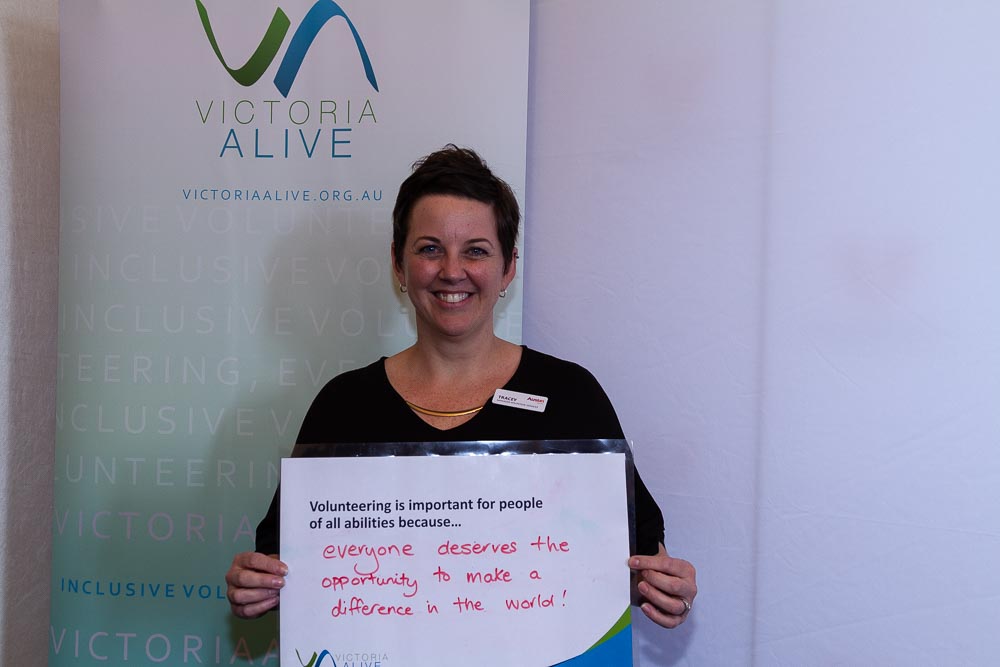 VICTORIA
ALIVE
VICTORIAALIVE.ORG.AU
SIVE VOLUNTE
INCLUSIVE VO
INCLUSIVE VOLU
TEERING, EVE
NCLUSIVE V
LUNTEERIN
VICTORIA
INCLUSIVE VOL
VICTORIA A
TRACEY
Austin
Volunteering is important for people
of all abilities because...
everyone deserves the
opportunity to make a
difference in the world!
VICTORIA
ALIVE